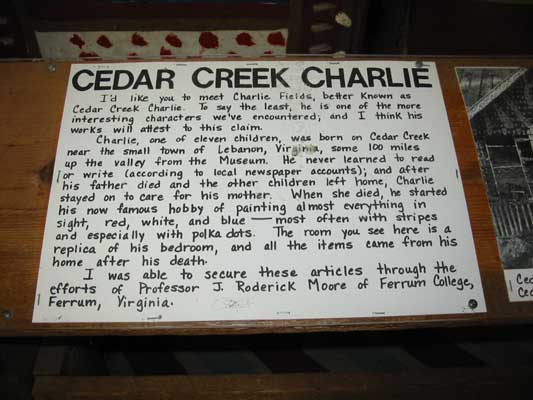 CEDAR CREEK CHARLIE
I'd like you to meet Charlie Fields, better known as
Cedar Creek Charlie. To say the least, he is one of the more
interesting characters we've encountered; and I think his
works will attest to this claim.
Charlie, one of eleven children, was born on Cedar Creek
near the small town of Lebanon, Virginia, some 100 miles
up the valley from the Museum. He never learned to read
or write (according to local newspaper accounts); and after
his father died and the other children left home, Charlie
stayed on to care for his mother. When she died, he started
his now famous hobby of painting almost everything in
sight, red, white, and blue — most often with stripes
and especially with polka dots. The room you see here is a
replica of his bedroom, and all the items came from his
home after his death.
I was able to secure these articles through the
efforts of Professor J. Roderick Moore of Ferrum College,
Ferrum, Virginia.